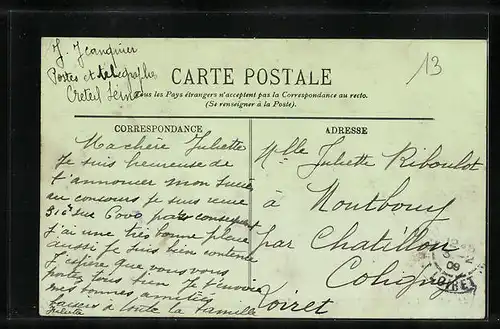 J. Jeanguier
Postes et télégraphes
Creteil Seine
13
CARTE POSTALE
Tous les Pays étrangers n'acceptent pas la Correspondance au recto.
(Se renseigner à la Poste).
CORRESPONDANCE
Ma chère Juliette
Je suis heureuse de
t'annoncer mon succès
au concours je suis reçue
916e sur par conséquent
j'ai une très bonne place
aussi je suis bien contente
J'espère que vous vous
portez tous bien Je t'envoie
mes bonnes amitiés
à toute la famille
Juliette
ADRESSE
Mlle Juliette Riboulot
à
Montbouy
par Chatillon
Coligny
Loiret
09
LOIRET